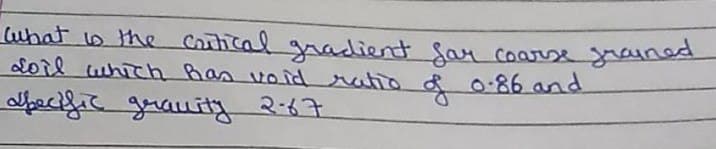 What is the critical gradient for coarse grained
soil which has void ratio of 0.86 and
specific gravity 2.67